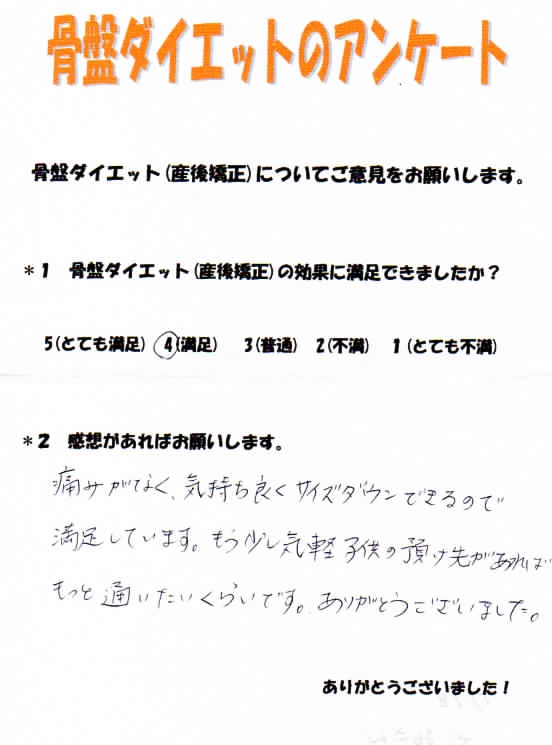 骨盤ダイエットのアンケート
骨盤ダイエット(産後矯正)についてご意見をお願いします。
*1 骨盤ダイエット(産後矯正)の効果に満足できましたか?
5(とても満足) 4(満足) 3(普通) 2(不満) 1(とても不満)
*2 感想があればお願いします。
痛みがなく、気持ち良くサイズダウンできるので
満足しています。もう少し気軽子供の預け先があれば
もっと通いたいくらいです。ありがとうございました。
ありがとうございました!